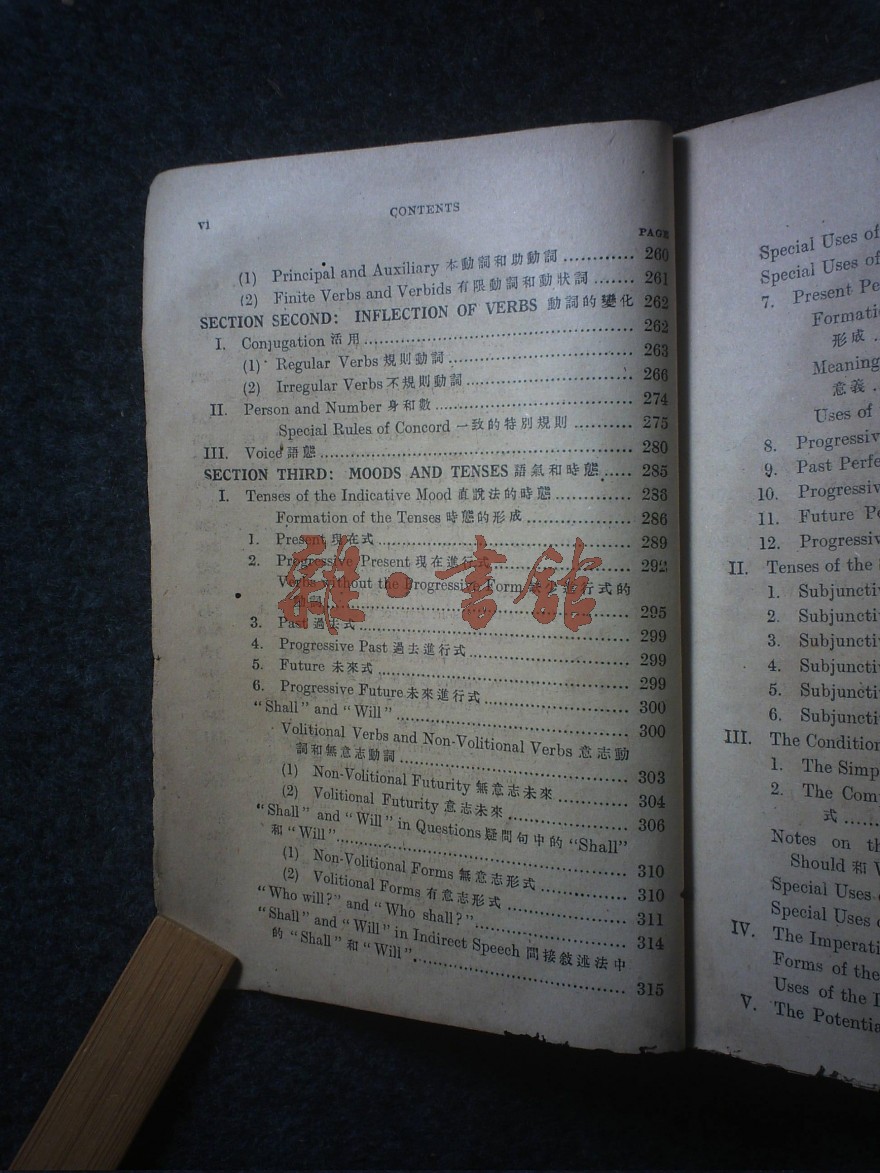 vi
CONTENTS
PAGE
(1) Principal and Auxiliary 本動詞和助動詞 ............ 260
(2) Finite Verbs and Verbids 有限動詞和動狀詞 ....... 261
SECTION SECOND: INFLECTION OF VERBS 動詞的變化 262
I. Conjugation 活用 ............ 262
(1) Regular Verbs 規則動詞 ............ 263
(2) Irregular Verbs 不規則動詞 ............ 266
II. Person and Number 身和數 ............ 274
Special Rules of Concord 一致的特別規則 .......... 275
III. Voice 語態 ............ 280
SECTION THIRD: MOODS AND TENSES 語氣和時態 ..... 285
I. Tenses of the Indicative Mood 直說法的時態 ............ 286
Formation of the Tenses 時態的形成 ............ 286
1. Present 現在式 ............ 289
2. Progressive Present 現在進行式 ............ 292
Verbs without the Progressive Form 無進行式的
動詞 ............ 295
3. Past 過去式 ............ 299
4. Progressive Past 過去進行式 ............ 299
5. Future 未來式 ............ 299
6. Progressive Future 未來進行式 ............ 300
"Shall" and "Will" ............ 300
Volitional Verbs and Non-Volitional Verbs 意志動
詞和無意志動詞 ............ 303
(1) Non-Volitional Futurity 無意志未來 ............ 304
(2) Volitional Futurity 意志未來 ............ 306
"Shall" and "Will" in Questions 疑問句中的 "Shall"
和 "Will" ............ 310
(1) Non-Volitional Forms 無意志形式 ............ 310
(2) Volitional Forms 有意志形式 ............ 311
"Who will?" and "Who shall?" ............ 314
"Shall" and "Will" in Indirect Speech 間接敘述法中
的 "Shall" 和 "Will" ............ 315
雜·書館
Special Uses of
Special Uses of
7. Present Pe
Formatio
形成 ..
Meaning
意義 .
Uses of
8. Progressiv
9. Past Perfe
10. Progressiv
11. Future Pe
12. Progressiv
II. Tenses of the
1. Subjuncti
2. Subjuncti
3. Subjuncti
4. Subjuncti
5. Subjuncti
6. Subjuncti
III. The Condition
1. The Simp
2. The Com
式 ......
Notes on th
Should 和
Special Uses
Special Uses
IV. The Imperati
Forms of the
Uses of the I
V. The Potentia